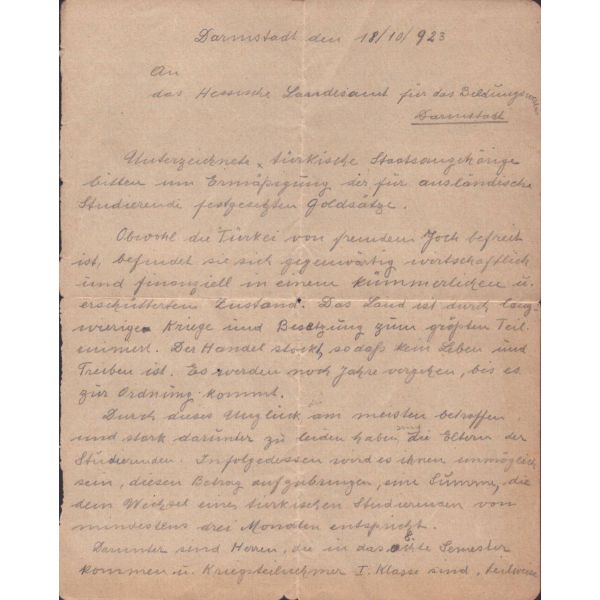 Darmstadt den 18/10/923
An
das Hessische Landesamt für das Bildungswesen
Darmstadt
Unterzeichnete türkische Staatsangehörige
bitten um Ermäßigung der für ausländische
Studierende festgesetzten Goldsätze.
Obwohl die Türkei von fremdem Joch befreit
ist, befindet sie sich gegenwärtig wirtschaftlich
und finanziell in einem kümmerlichen u.
erschütterten Zustand. Das Land ist durch lang-
wierige Kriege und Besetzung zum größten Teil
ruiniert. Der Handel stockt, sodaß kein Leben und
Treiben ist. Es werden noch Jahre vergehen, bis es
zur Ordnung kommt.
Durch dieses Unglück am meisten betroffen
und stark darunter zu leiden haben die Eltern der
Studierenden. Infolgedessen wird es ihnen unmöglich
sein, diesen Betrag aufzubringen, eine Summe, die
dem Wechsel eines türkischen Studierenden von
mindestens drei Monaten entspricht.
Darunter sind Herren, die in das Semester
kommen u. Kriegsteilnehmer I. Klasse sind, teilweise